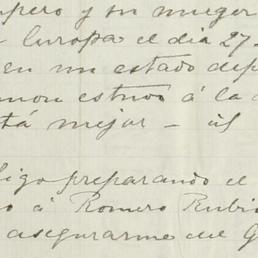 pero y su muger
Europa el dia 27.
en un estado dep
mon estuvo á la
tá mejor –
igo preparando el
á Romero Rubio
asegurarme del G